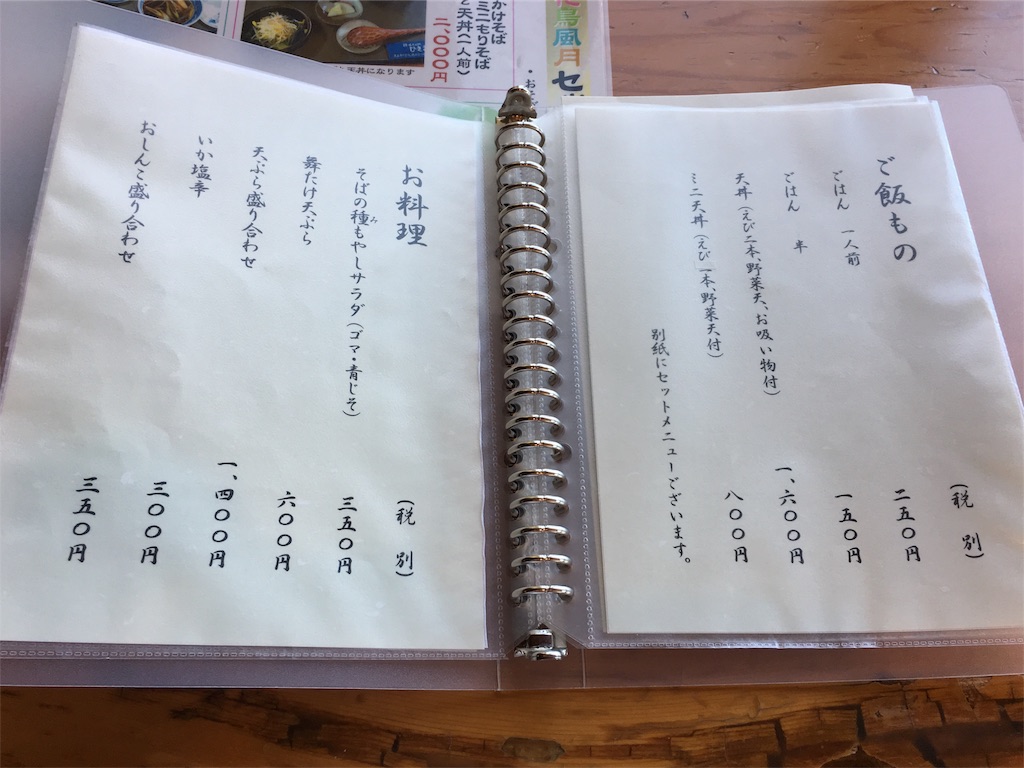 かけそば
ミニもりそば
と天丼(一人前)
二、〇〇〇円
天丼になります
鳥風月セ
ご飯もの
(税別)
ごはん 一人前 二五〇円
ごはん 半 一五〇円
天丼(えび二本、野菜天、お吸い物付) 一、六〇〇円
ミニ天丼(えび一本、野菜天付) 八〇〇円
別紙にセットメニューございます。
お料理
(税別)
そばの種もやしサラダ(ゴマ・青じそ) 三五〇円
み
舞たけ天ぷら 六〇〇円
天ぷら盛り合わせ 一、四〇〇円
いか塩辛 三〇〇円
おしんこ盛り合わせ 三五〇円